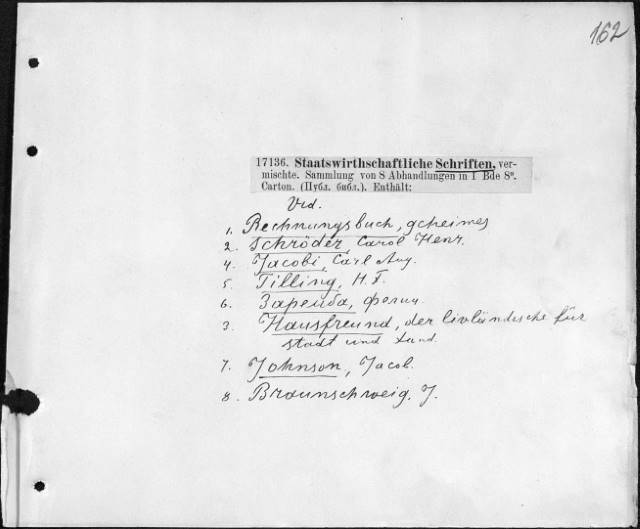 162
17136. Staatswirthschaftliche Schriften, ver-
mischte. Sammlung von 8 Abhandlungen in 1 Bde 8°.
Carton. (Публ. библ.). Enthält:
Vid.
1. Rechnungsbuch, geheimes
2. Schröder, Carol Henr.
4. Jacobi, Carl Aug.
5. Tilling, H. F.
6. Заремба, Фелиц.
3. Hausfreund, der livländische für
stadt und Land.
7. Johnson, Jacob.
8. Braunschweig, J.